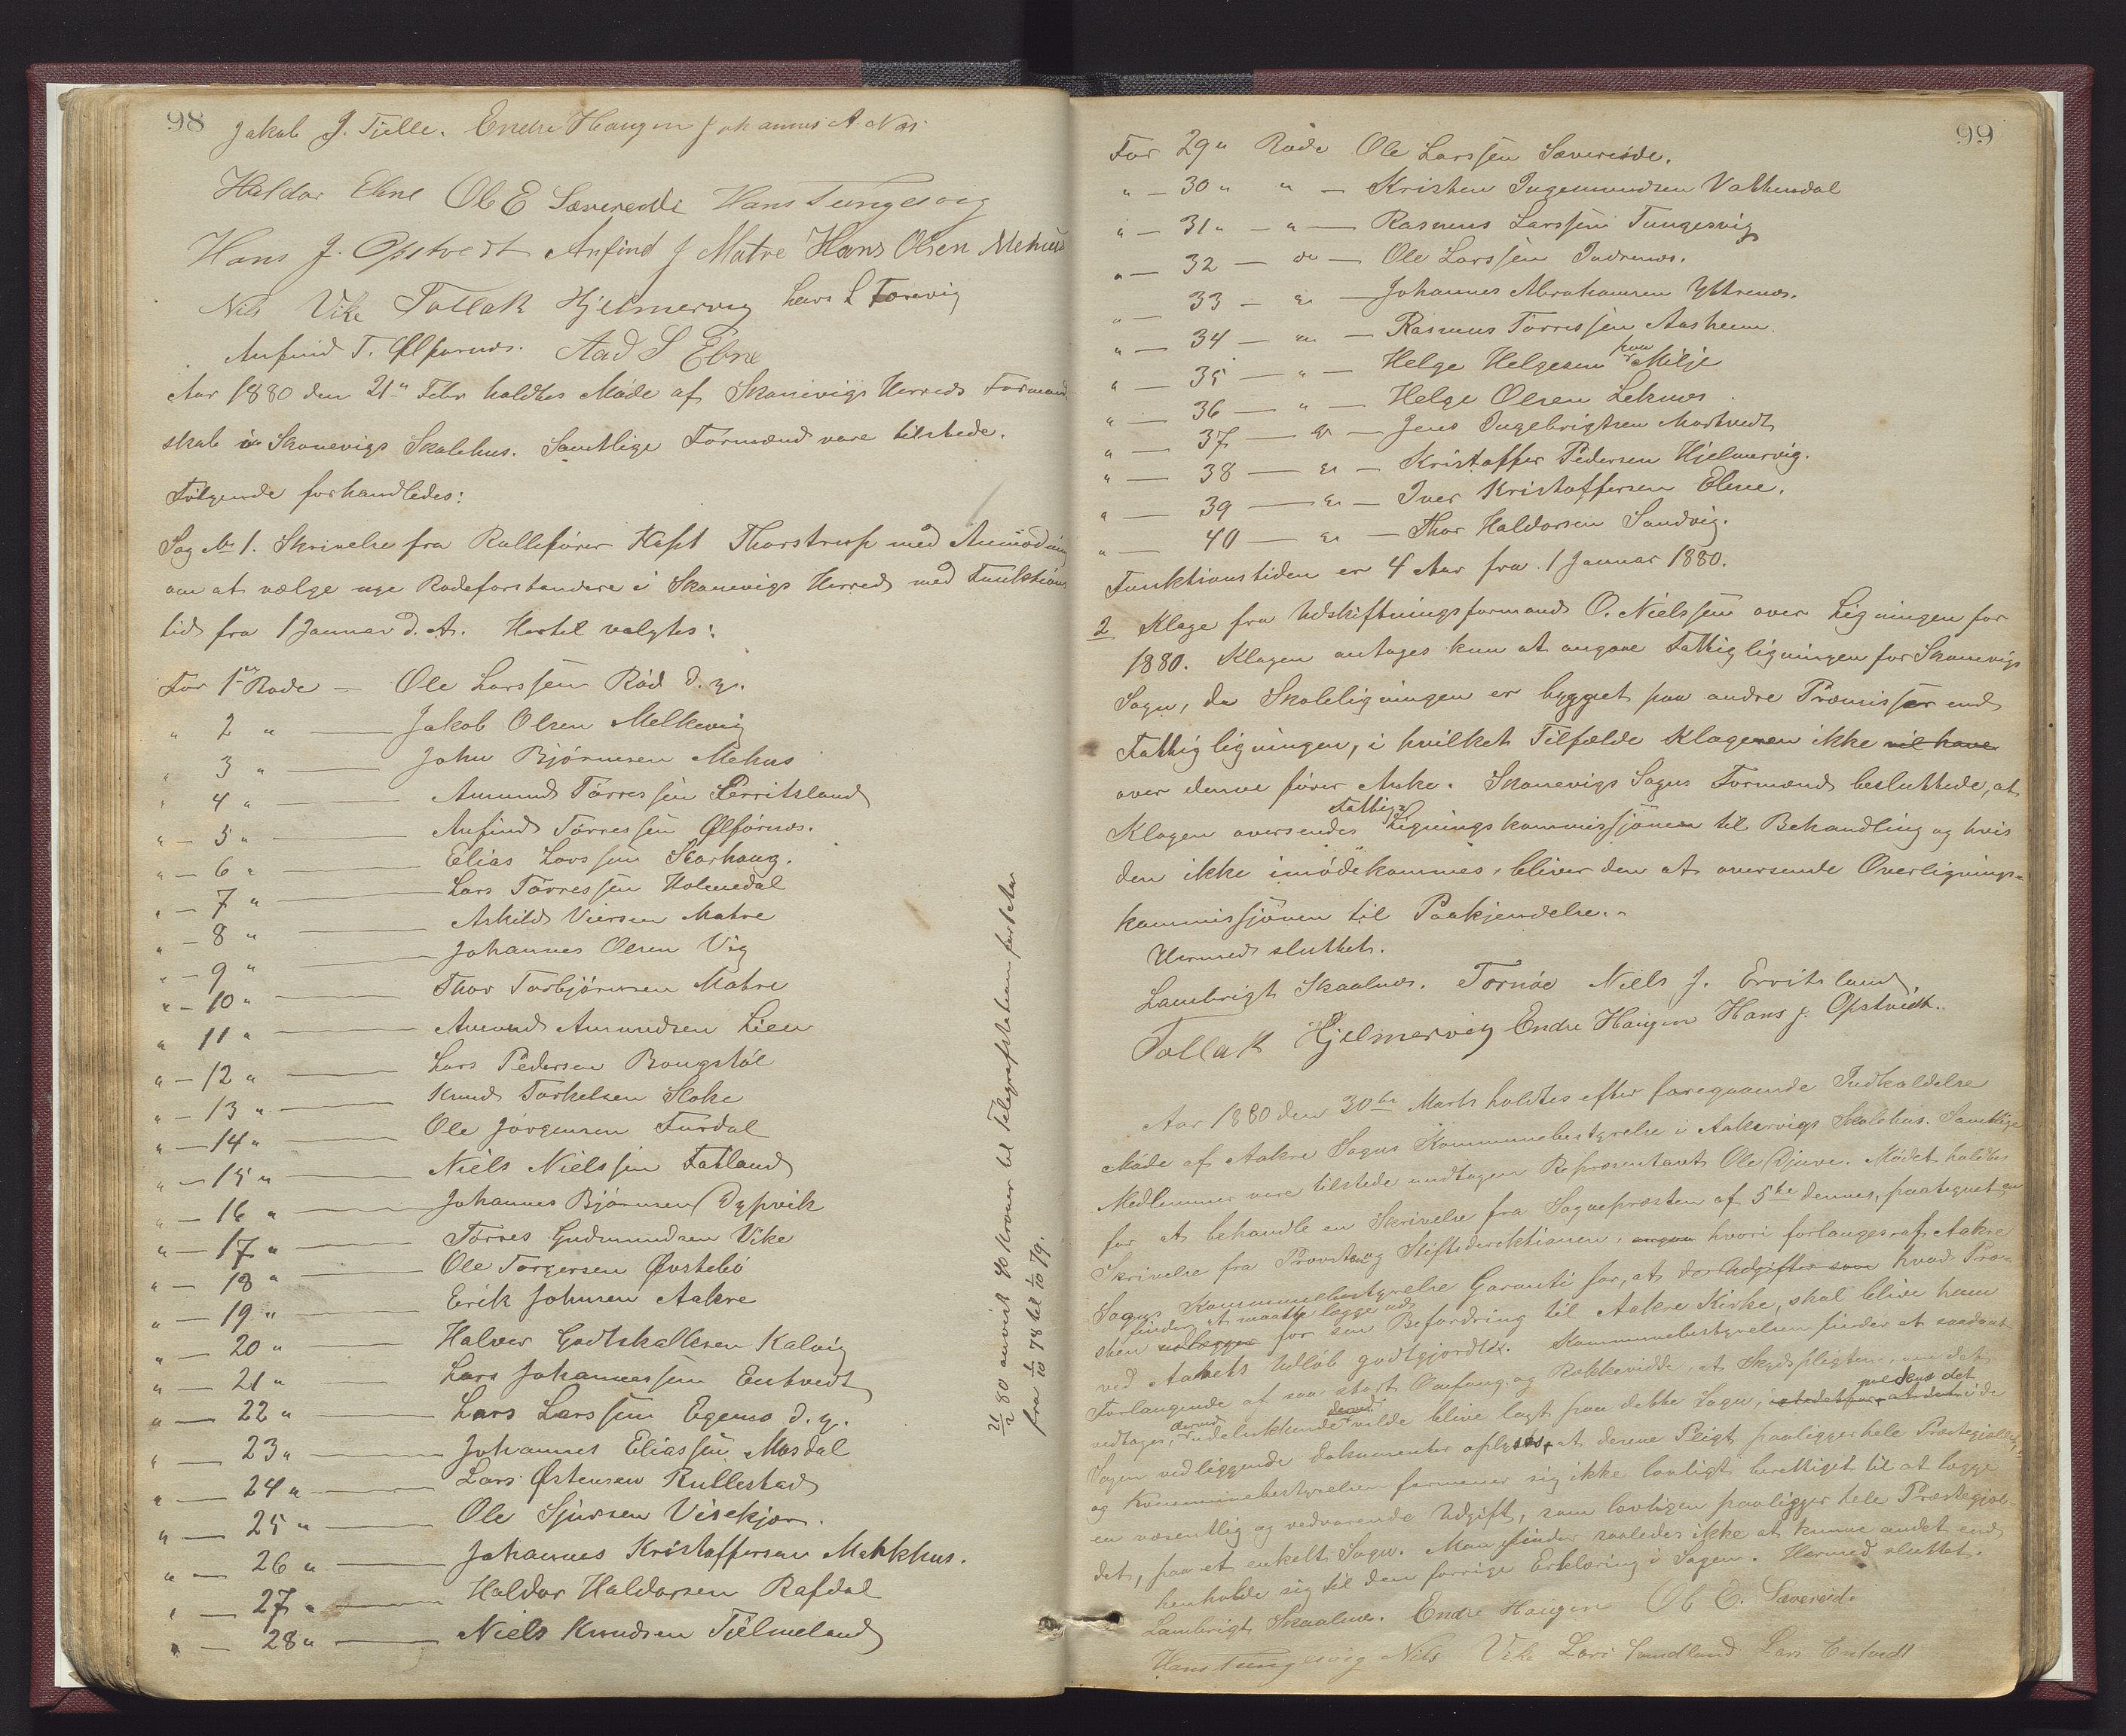 98
Jakob J. Tjelle. Endre Haugen Johannes A. Næs
Haldor Ebne Ole E Sævereide Hans Tungesvig
Hans J. Opstvedt Anfind J Matre Hans Olsen Mehus
Nils Vike Tollak Hjelmervig Lars L Tærevig
Anfind T. Ølfarnæs. Aad S Ebne
Aar 1880 den 21n Febr holdtes Møde af Skonevigs Herreds Formand
skab i Skonevigs Skolehus. Samtlige Formænd vare tilstede.
Følgende forhandledes:
Sag No 1. Skrivelse fra Rullefører Kapt Thorstrup med Anmodning
om at vælge nye Rodeforstandere i Skonevigs Herred med Funktions
tid fra 1 Januar d. A. Hertil valgtes:
For 1ste Rode – Ole Larssen Rød d. y.
" 2 " — Jakob Olsen Melkevig
" 3 " — John Bjørnsen Mehus
" 4 " — Amund Tørressen Erritsland
" – 5 " — Anfind Tørressen Ølfernæs.
" – 6 " — Elias Larssen Skarhaug.
" – 7 " — Lars Tørressen Holmedal
" – 8 " — Askild Viersen Matre
" – 9 " — Johannes Olsen Vig
" – 10 " — Thor Torbjørnsen Matre
" 11 " — Amund Amundsen Lien
" – 12 " — Lars Pedersen Bongstøl
" – 13 " — Knud Torkelsen Stoke
" – 14 " — Ole Jørgensen Furdal
" – 15 " — Niels Nielssen Fatland
" – 16 " — Johannes Bjørnsen Dypvik
" – 17 " — Tørres Gudmundsen Vike
" – 18 " — Ole Torgersen Østebø
" – 19 " — Erik Johnsen Aakre
" – 20 " — Halvor Godtskalksen Kalvig
" – 21 " — Lars Johannessen Entvedt
" – 22 " — Lars Larssen Egenæs d. y.
" – 23 " — Johannes Eliassen Mosdal
" – 24 " — Lars Østensen Rullestad
" – 25 " — Ole Sjursen Visekjøn.
" – 26 " — Johannes Kristoffersen Mehkhus.
" – 27 " — Haldor Haldorsen Rafdal
" – 28 " — Niels Knudsen Tjelmeland
21/2 80 anvist 40 Kroner til Telegrafstation for et Aar
fra 1/10 78 til 1/10 79.
99
For 29n Rode Ole Larssen Sævereide.
" – 30 " " – Kristen Ingemundsen Vattendal
" – 31 " – " – Rasmus Larssen Tungesvig
" – 32 – " – Ole Larssen Indrenæs.
" – 33 – " – Johannes Abrahamsen Yttrenæs.
" – 34 – " – Rasmus Tørressen Aasheim.
" – 35 – " – Helge Helgesen paa Milje
" – 36 – " – Helge Olsen Leknæs
" – 37 – " – Jens Ingebrigtsen Mortvedt
" – 38 – " – Kristoffer Pedersen Hjelmervig.
" – 39 – " – Iver Kristoffersen Ebne.
" – 40 – " – Thor Haldorsen Sandvig.
Funktionstiden er 4 Aar fra 1 Januar 1880.
2 Klage fra Udskiftningsformand O. Nielssen over Ligningen for
1880. Klagen antages kun at angaae Fattigligningen for Skonevigs
Sogn, da Skoleligningen er bygget paa andre Præmisser end
Fattigligningen, i hvilket Tilfælde Klageren ikke vil have
over denne fører Anke. Skonevigs Sogns Formænd besluttede, at
Klagen oversendes Fattig Ligningskommissjonen til Behandling og hvis
den ikke imødekommes, bliver den at oversende Overlignings-
kommissjonen til Paakjendelse.
Hermed sluttet.
Lambrigt Skaalnæs. Tornøe Niels J. Erritsland
Tollak Hjelmervig Endre Haugen Hans J. Opstvedt.
Aar 1880 den 30te Marts holdtes efter foregaaende Indkaldelse
Møde af Aakre Sogns Kommunebestyrelse i Aakervigs Skolehus. Samtlige
Medlemmer vare tilstede undtagen Repræsentant Ole Djuve. Mødet holdtes
for at behandle en Skrivelse fra Sognepræsten af 5te dennes, paategnet en
Skrivelse fra Provsten og Stiftsdirektionen, hvori forlanges af Aakre
Sogns Kommunebestyrelse Garanti for, at de Udgifter som hvad Præ-
sten finder at maatte lægge ud for sin Befordring til Aakre Kirke, skal blive ham
ved Aarets Udløb godtgjordt. Kommunebestyrelsen finder at saadant
Forlangende af saa stort Omfang og Rækkevidde, at Skydspligten, om det
vedtages, derved udelukkende vilde blive lagt paa dette Sogn, istedetfor at det medens det i de
Sagen vedliggende Dokumenter oplyses, at denne Pligt paaligger hele Præstegjeldet,
og Kommunebestyrelsen formener sig ikke lovligt berettiget til at lægge
en væsentlig og vedvarende Udgift, som lovligen paaligger hele Præstegjel-
det, paa et enkelt Sogn. Man finder saaledes ikke at kunne andet end
henholde sig til den forrige Erklæring i Sagen. Hermed sluttet.
Lambrigt Skaalnæs. Endre Haugen Ole E. Sævereid.
Hans Tungesvig Nils Vike Lars Sundland Lars Entvedt